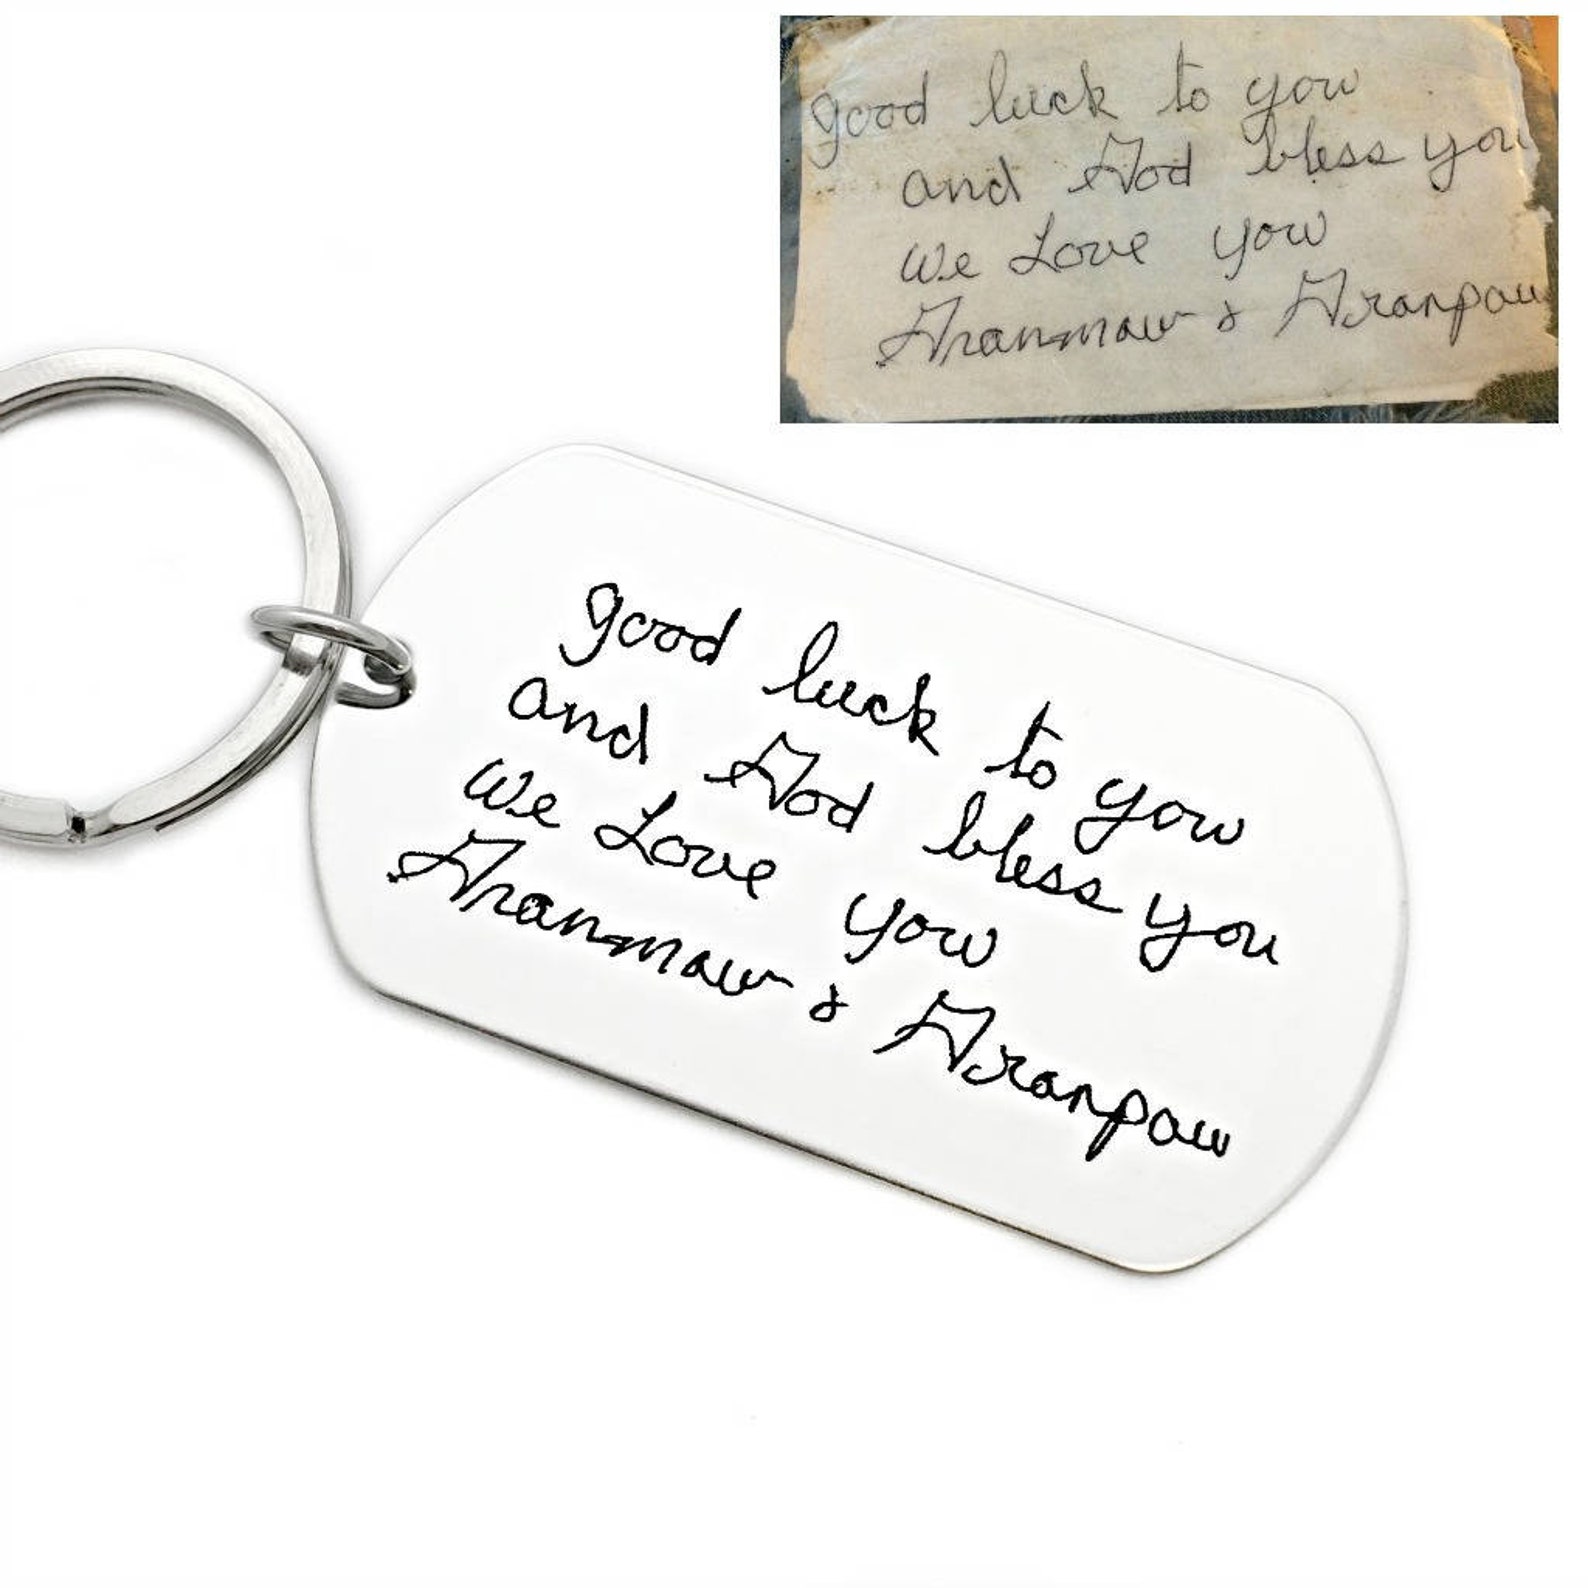 good luck to you
and God bless you
we Love you
Granmaw & Granpaw
good luck to you
and God bless you
we Love you
Granmaw & Granpaw